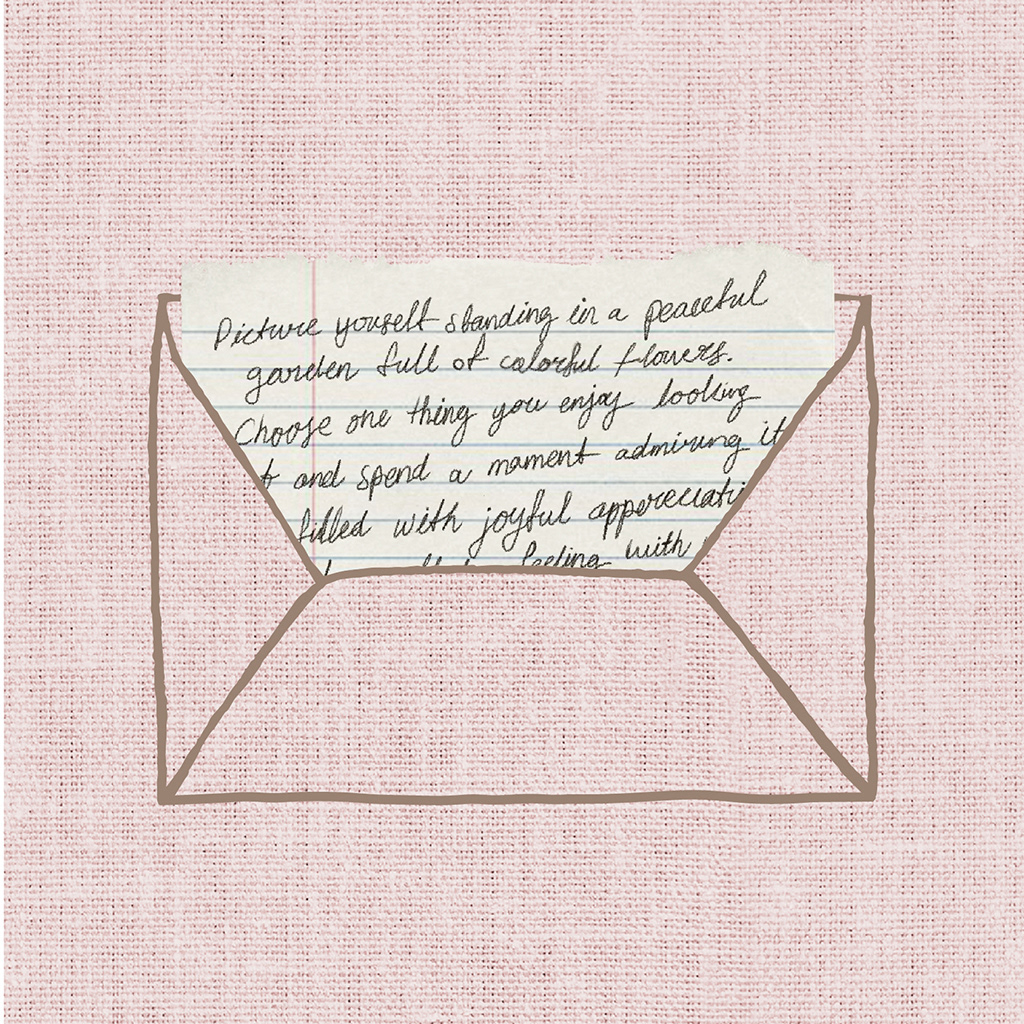 Picture yourself standing in a peaceful
garden full of colorful flowers.
Choose one thing you enjoy looking
and spend a mament admiring it
filled with joyful appereciati
feeling with